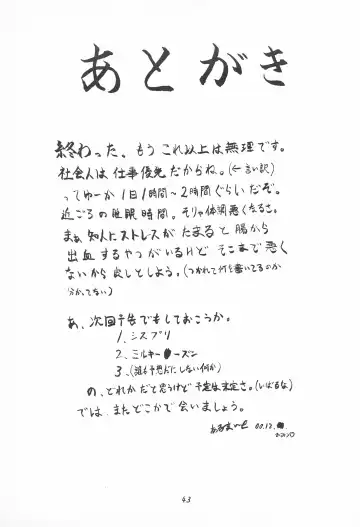 あとがき
終わった、もうこれ以上は無理です。
社会人は仕事優先だからね。(←言い訳)
ってゆーか1日1時間～2時間ぐらいだぞ。
近ごろの睡眠時間。そりゃ体調悪くなるさ。
まぁ知人にストレスがたまると腸から
出血するやつがいるけどそこまで悪く
ないから良しとしよう。(つかれてて何を書いてるのか
分かってない)
あ、次回予告でもしておこうか。
1、シスプリ
2、ミルキー●ーズン
3、(誰も予想だにしない何か)
の、どれかだと思うけど予定は未定さ。(いばるな)
では、またどこかで会いましょう。
00.12.
43